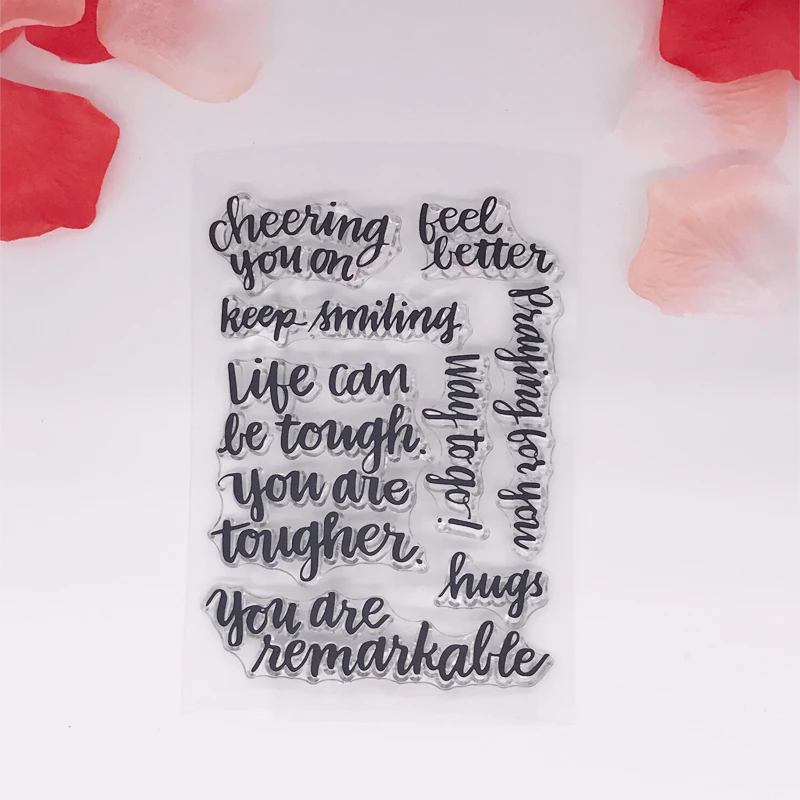 cheering
you on
feel
better
keep smiling
Praying for you
Life can
be tough.
you are
tougher.
Way to go!
hugs
You are
remarkable